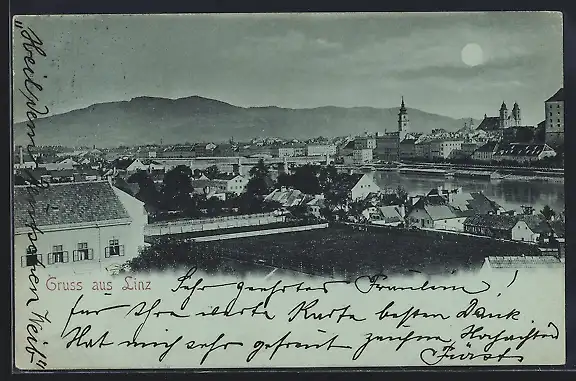 Gruss aus Linz
Sehr geehrtes Fräulein!
für Ihre werte Karte besten Dank
Hat mich sehr gefreut zeichne Hochachtend
Fürst
"Heil vom
deutschen Weib"